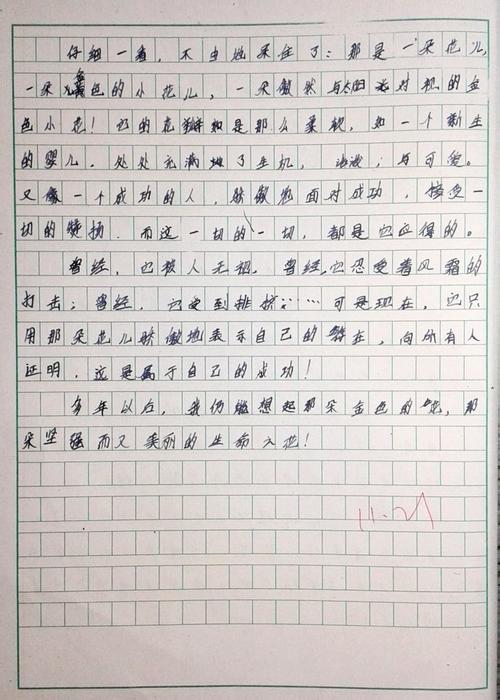 仔细一看，不由地呆住了：那是一朵花儿，
一朵金色的小花儿，一朵傲然与太阳对视的金
色小花！它的花瓣如是那么柔软，如一个新生
的婴儿，处处充满地了生机，活泼；与可爱。
又像一个成功的人，骄傲地面对成功，接受一
切的赞扬．而这一切的一切，都是它应得的。
曾经，它被人无视，曾经，它忍受着风霜的
打击；曾经，它受到排挤……可是现在，它只
用那朵花儿骄傲地表示自己的存在，向所有人
证明，这是属于自己的成功！
多年以后，我仍能想起那朵金色的花，那
朵坚强而又美丽的生命之花！
11.21